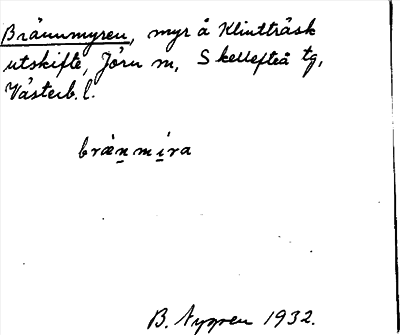 Brännmyren, myr å Klintträsk
utskifte, Jörn sn, Skellefteå tg,
Västerb. l.
bræ̀n̲mi̲ra
B. Nygren 1932.